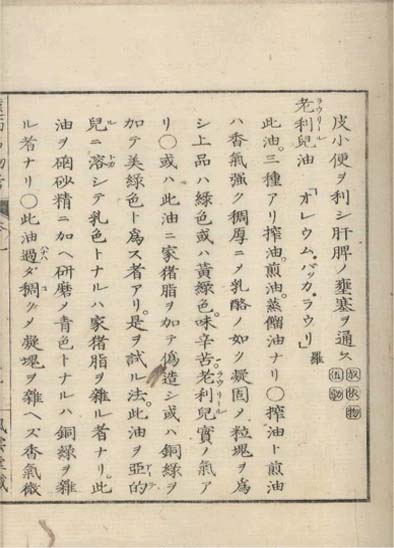 皮小便ヲ利シ肝脾ノ壅塞ヲ通ス
老利兒油 「オレウム、バッカ、ラウリ」羅
ラウリール
此油三種アリ搾油。煎油。蒸餾油ナリ〇搾油ト煎油
ハ香氣強ク稠厚ニメ乳酪ノ如ク凝固ノ粒塊ヲ為
シ上品ハ綠色或ハ黃綠色。味辛苦。老利兒實ノ氣ア
ラウリール
リ〇或ハ此油ニ家猪脂ヲ加テ偽造シ或ハ銅綠ヲ
加テ美綠色ト爲ス者アリ。是ヲ試ル法。此油ヲ亞的
アーテ
兒ニ溶シテ乳色トナルハ家猪脂ヲ雜ル者ナリ。此
ル トカ
油ヲ硇砂精ニ加ヘ研磨メ青色トナルハ銅綠ヲ雜
ル者ナリ〇此油過ダ稠クメ凝塊ヲ雜ヘズ香氣微